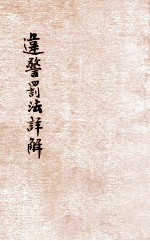 違警罰法詳解